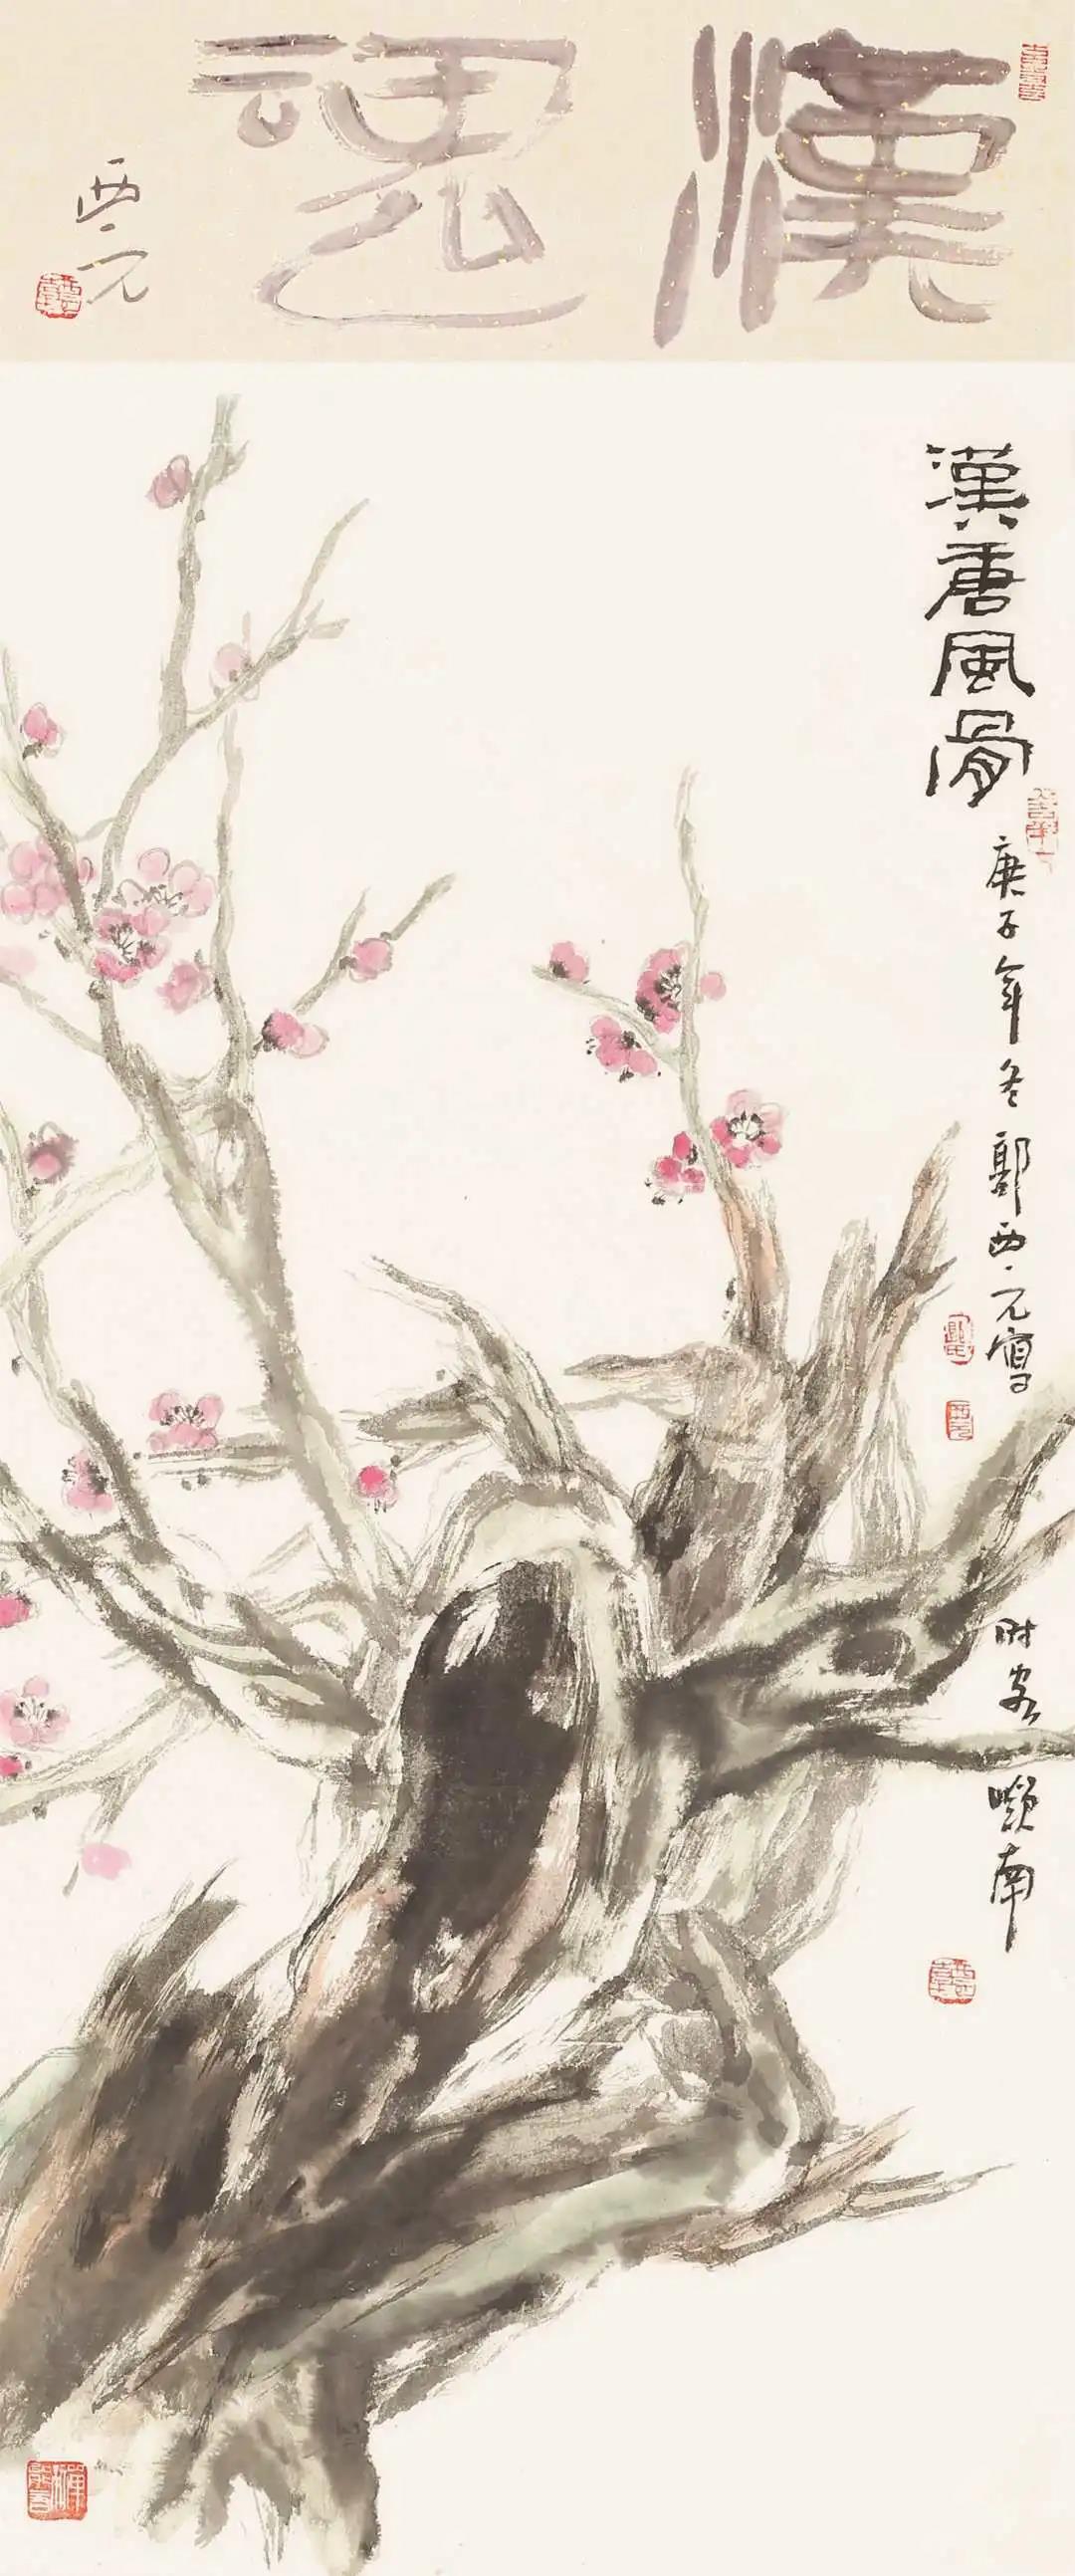 漢魂
西元
漢唐風骨
庚子年冬郭西元寫
西元
时客嶺南